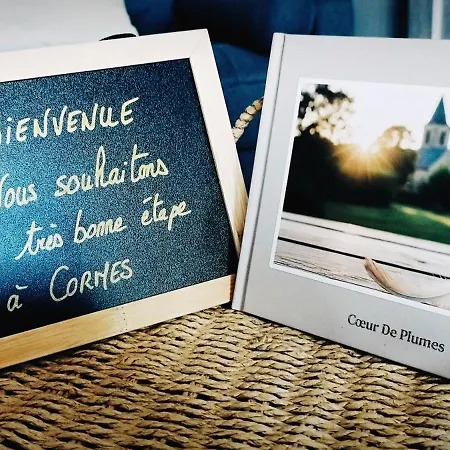 BIENVENUE
Nous souhaitons
très bonne étape
à CORMES
Cœur De Plumes